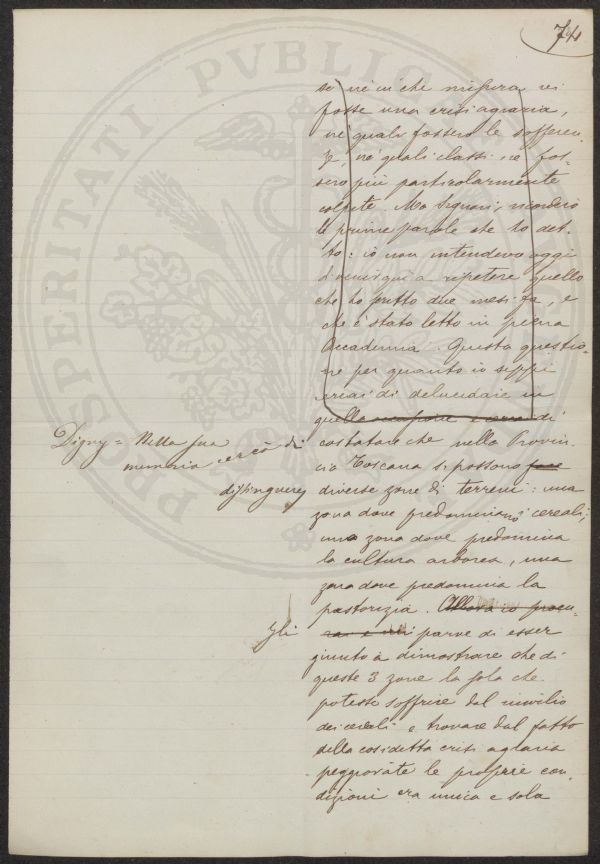 74
se, nè in che misura vi
fosse una crisi agraria,
nè quali fossero le sofferen-
ze, nè quali classi ne fos-
sero più particolarmente
colpite. Ma Signori, ricorderò
le prime parole che ho det-
to: io non intendevo oggi
di venir qui a ripetere quello
che ho fatto due mesi fa, e
che è stato letto in piena
Accademia. Questa questio-
ne per quanto io seppi
cercai di delucidare in
quella e cercai di
Digny = Nella sua
memoria cercò di
distinguere
costatare che nella Provin-
cia Toscana si possono fare
diverse zone di terreni: una
zona dove predominano i cereali;
una zona dove predomina
la cultura arborea, una
zona dove predomina la
pastorizia. Allora io procu-
gli
rai e mi parve di esser
giunto a dimostrare che di
queste 3 zone la sola che
potesse soffrire dal invilio
dei cereali e trovare dal fatto
della cosidetta crisi agraria
peggiorate le proprie con-
dizioni era unica e sola
PROSPERITATI PVBLICAE